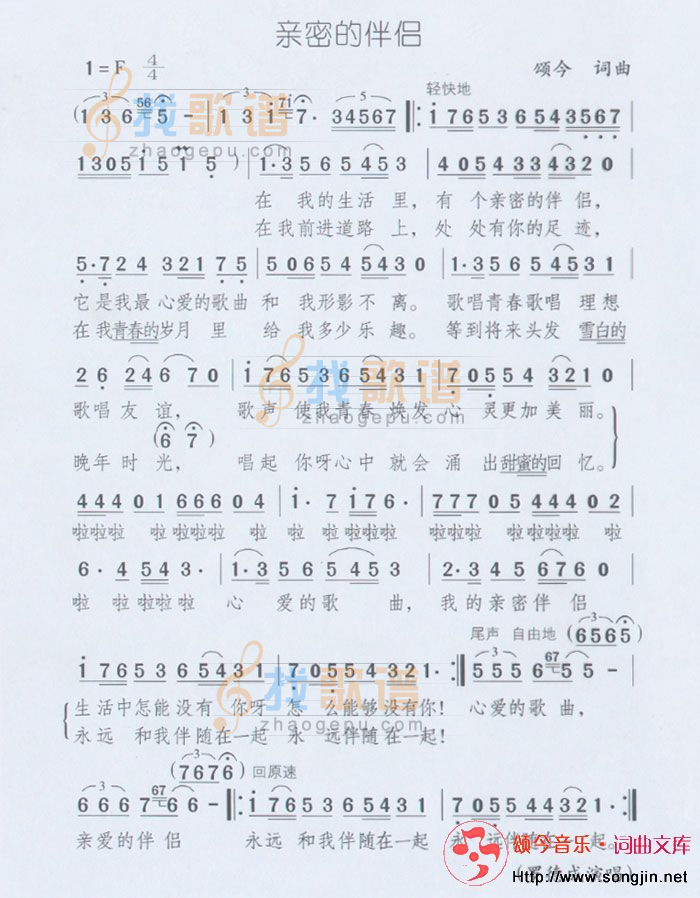 亲密的伴侣
1=F 4/4
颂今 词曲
轻快地
(1 3 6 56 5 - | 1 3 i 7i 7· 34567 |: i 765365433567 |
1305i5i5) | 1·3565 453 | 4054334320 |
在 我的生活 里, 有 个亲密的伴 侣,
在我前进道路 上, 处 处有你的足 迹,
5·724 321 75 | 5065454430 | 1·3565 4531 |
它是我最 心爱的歌曲 和 我形影不 离。 歌唱青春歌唱 理想
在我青春的岁月 里 给 我多少乐 趣。 等到将来头发 雪白的
26 246 70 | i 765365431 | 7055 4 3210
歌唱友谊, 歌声 使我青春 焕发 心 灵更加美 丽。
(6 7)
晚年时光, 唱起 你呀心中 就会 涌 出甜蜜的回 忆。
444 01 6660 4 | i· 7 i76· | 777 05 444 02
啦啦啦 啦 啦啦啦 啦 啦 啦 啦啦啦 啦啦啦 啦 啦啦啦 啦
6· 4 543· | 1·3 565 453 | 2·345 6760
啦 啦 啦啦啦 心 爱的歌 曲, 我的亲密伴 侣
尾声 自由地 (6565)
i 765365431 | 7055 4321· :| 5556 67 55 -
生活中怎能没有 你呀 怎 么能够没有你! 心爱的歌 曲,
永远 和我伴随在一起 永 远伴随在一起!
(7676) 回原速
6667 67 66 - |: i 765365431 | 7055 44321· :|
亲爱的伴 侣 永远 和我伴随在一起 永 远伴随在一起。
找歌谱
zhaogepu.com
找歌谱
zhaogepu.com
找歌谱
zhaogepu.com
颂今音乐·词曲文库
Http://www.songjin.net